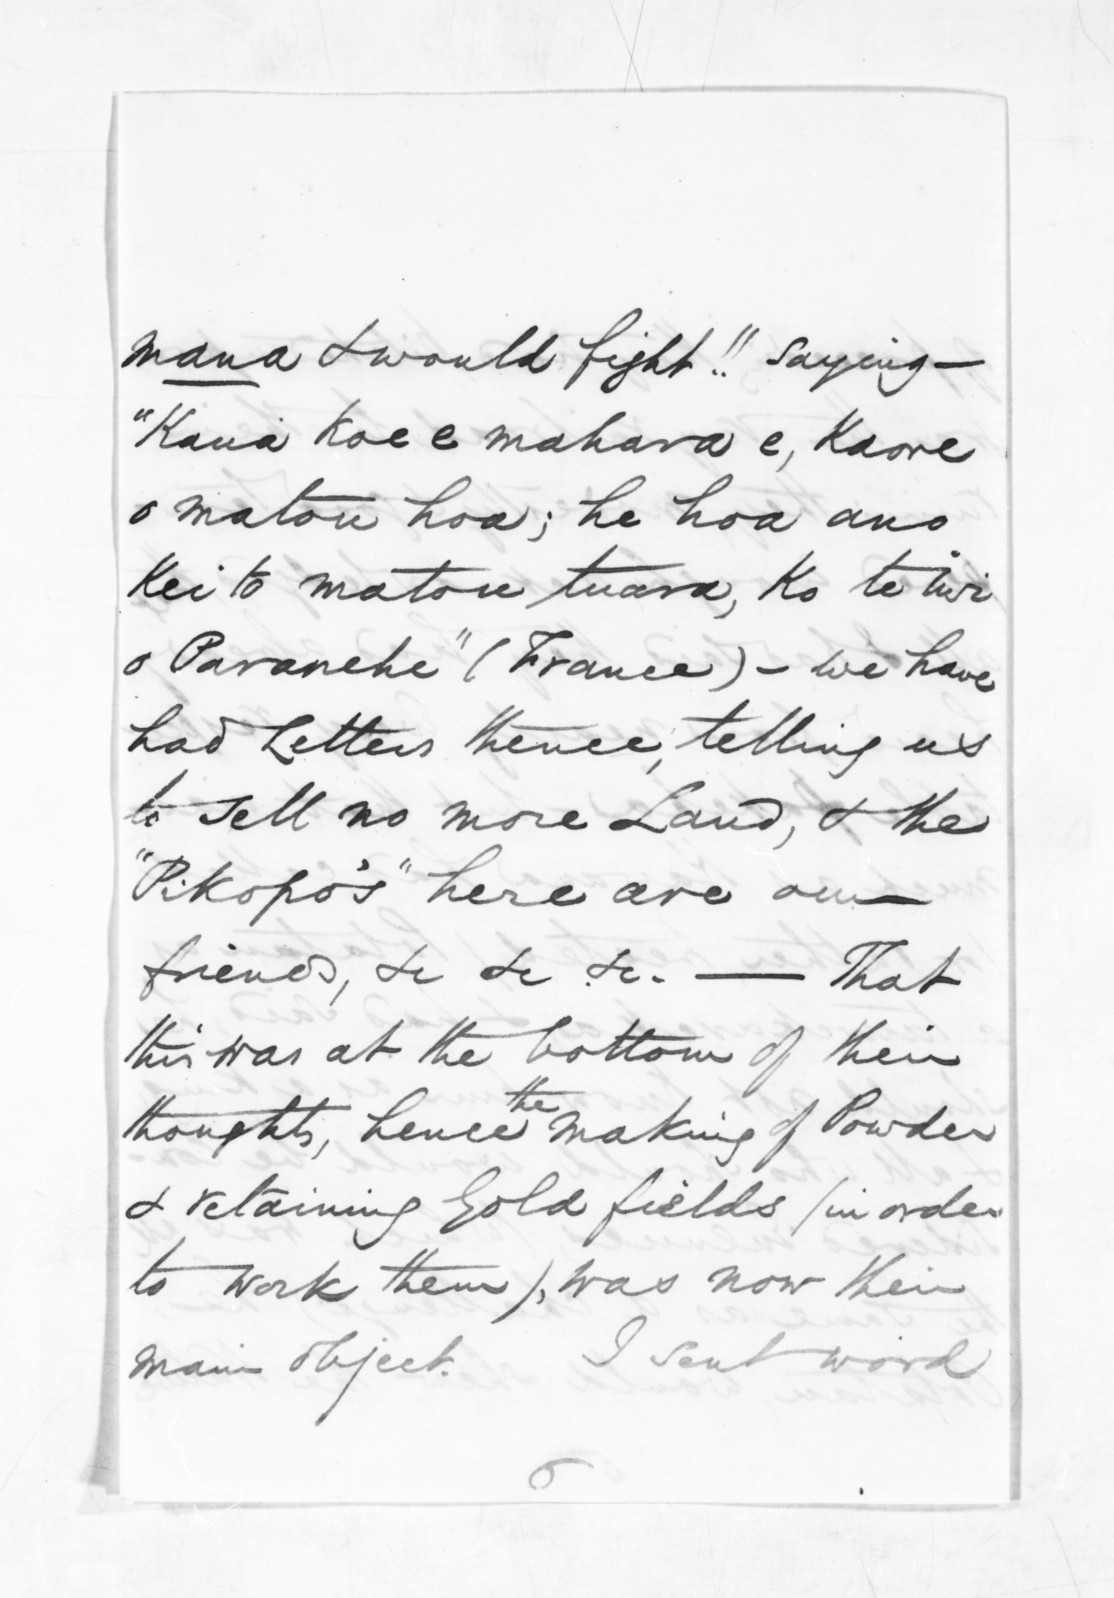 mana & would fight!! saying—
"Kaua koe e mahara e, Kaore
o matou hoa; he hoa ano
Kei to matou tuara, Ko te Iwi
o Paranehe" (France) – we have
had Letters thence, telling us
to sell no more Land, & the
"Pikopo's" here are our
friends, &c &c &c. — That
this was at the bottom of their
thoughts, hence the making of Powder
& retaining Gold fields (in order
to work them), was now their
main object. I sent word